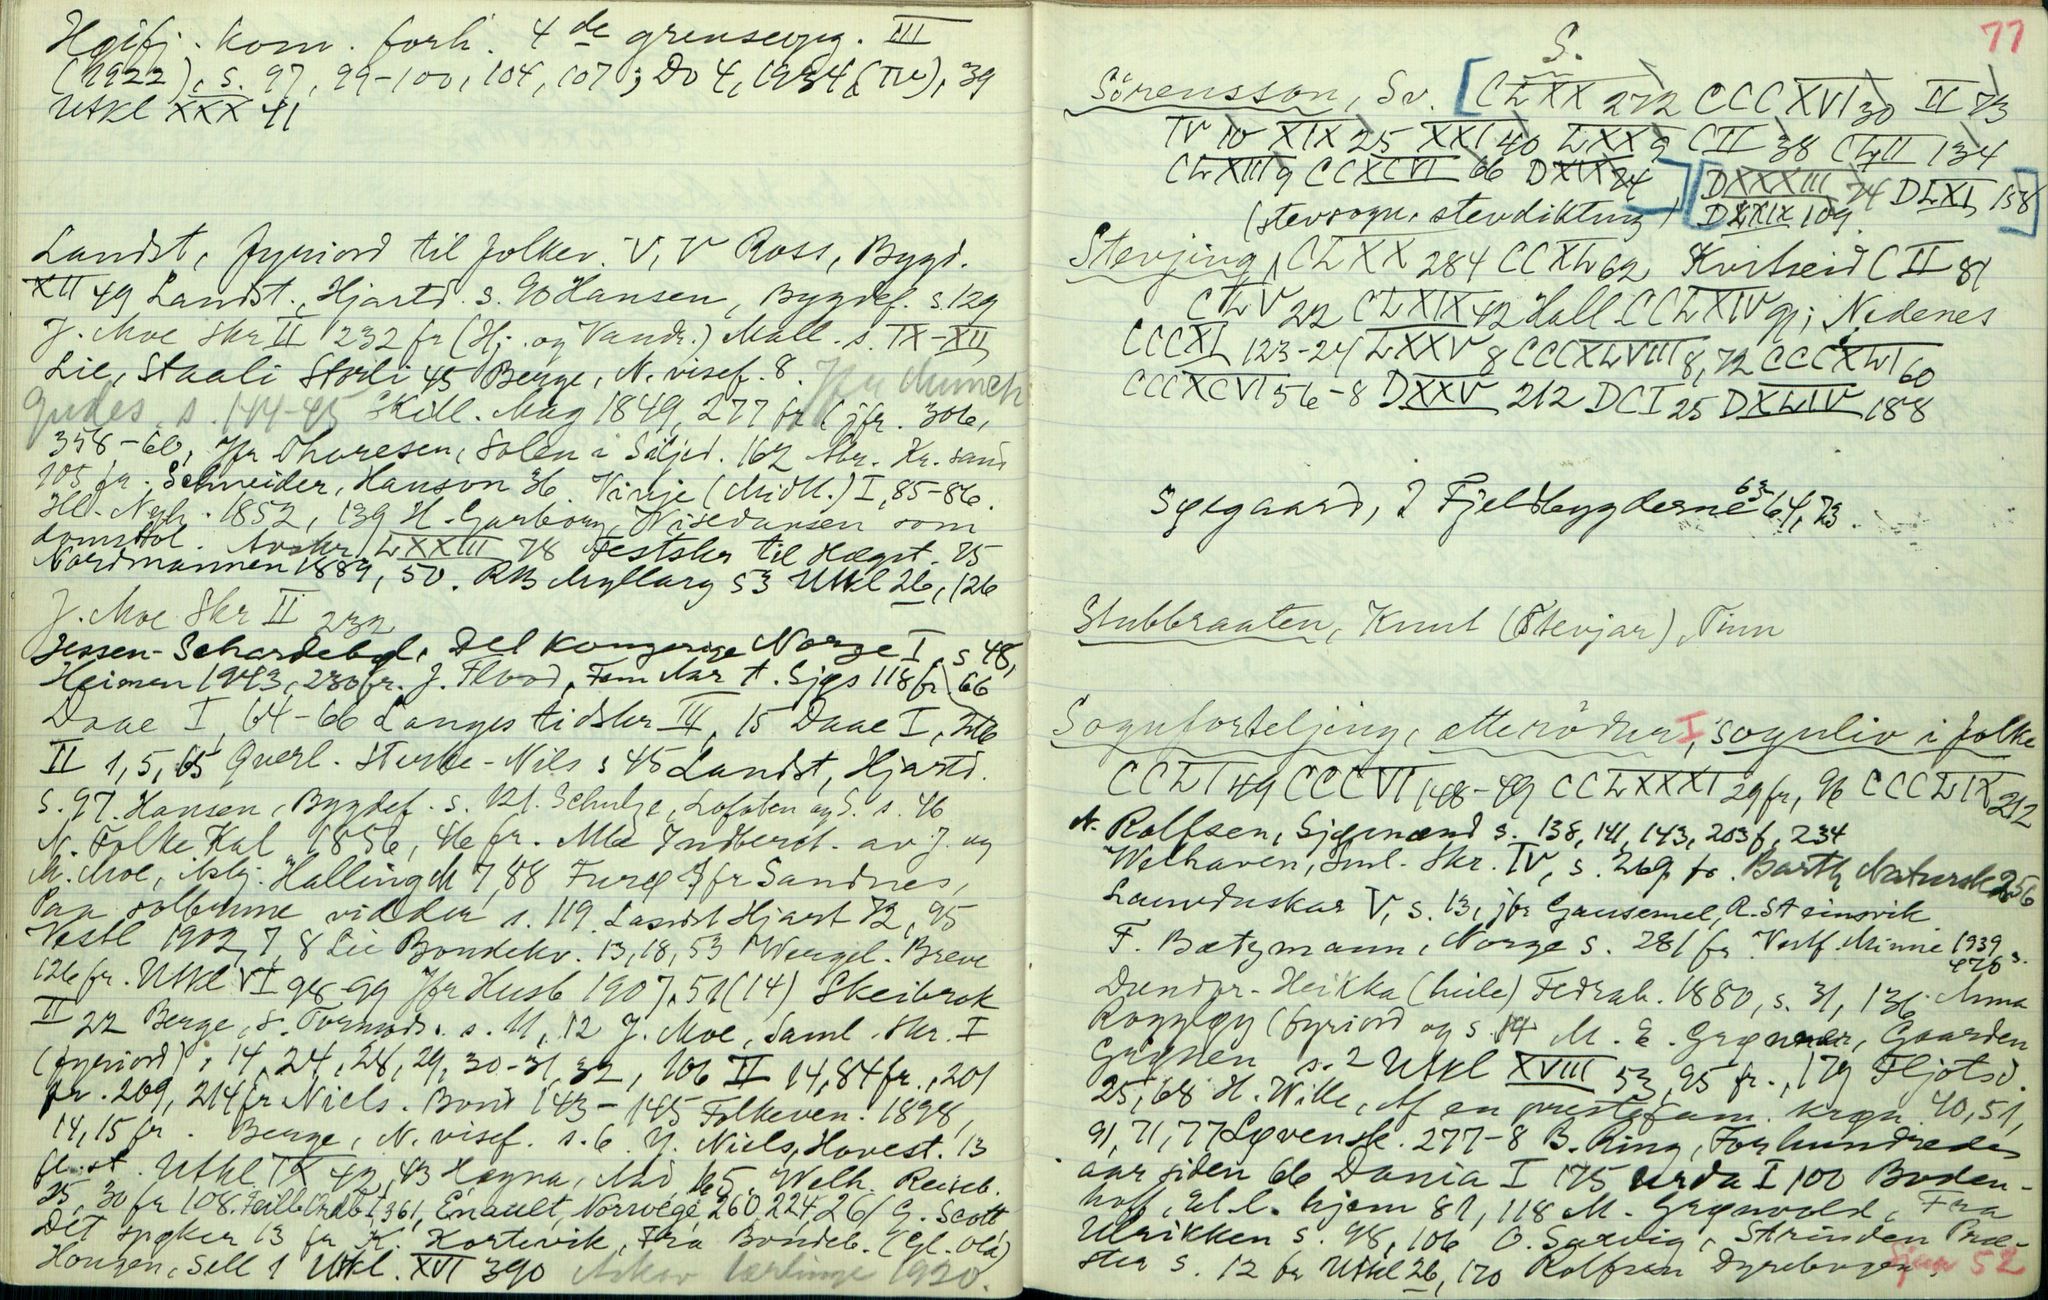 Hgifj. kom. forh. 4de grenseopg. III
(1922), s. 97, 99-100, 104, 107; Do 4, 1934 (IV), 39
Utkl XXX 41
Landst, fyriord til folkev. V, V Ross, Bygd.
XII 49 Landst., Hjartd. s. 90 Hansen, Bygdef. s. 129
J. Moe Skr II 232 fr (Hj. og Vandr.) Mall. s. IX-XII
Lie, Staali Storli 45 Berge, N. visef. 8. Jfr Munch
gudes. s. 144-45 Skill. Mag 1849, 277 fr (jfr. 306,
358-60, Jfr Thoresen, Solen i Siljed. 162 Kr. sand
105 fr. Schneider, Hanson 36. Vinje (Midtt.) I, 85-86.
Ill. Nyh. 1852, 139 H. Garborg, Visedansen som
domstol. Avskr LXXIII 78 Festskr til Hægst. 75
Nordmannen 1889, 50. RB Myllarg 53 Utkl 26, 126
J. Moe Skr II 232
Jessen-Schardebøl, Det Kongerige Norge I, s 48,
Heimen 1943, 230 fr. J. Flood, Fem Aar t. Sjøs 118 fr 66
Daae I, 64-66 Langes tidskr III, 15 Daae I, 216
II 1, 5, 65 Qverl. Sterke-Nils s 45 Landst, Hjartd.
s. 97. Hansen, Bygdef. s. 121. Schulze, Lofoten og S. s. 46
N. Folke Kal 1856, 46 fr. Moe Indberet. av J. og
M. Moe, Asbj. Halling M 7, 88 Jfr Sandnes,
Paa solbrune vidder s. 119. Landst Hjart 72, 95
Vestl 1902, 7, 8 Lie Bondekv. 13, 18, 53 Wergel. Breve
126 fr. Utkl VI 98-99 Jfr Husb 1907, 51 (14) Skeibrok
II 22 Berge, s. Tormods. s. 11, 12 J. Moe, Saml. Skr. I
(fyriord), 14, 24, 28, 29, 30-31, 32, 106 II 14, 84 fr., 201
fr. 209, 214 fr Niels. Bond 143-145 Folkeven. 1898,
14, 15 fr. Berge, N. visef. s. 6 Y. Niels, Hovest. 13
fl. st. Utkl IX 42, 43 Høgna, Mid 65. Welh. Reiseb.
25, 30 fr 108. Feilb Ordb I, 361, Enault, Norvège 260, 224, 26 G. Scott
Det spøker 13 fr K. Kortevik, Fra Bondeb. (Gl. Ola)
Hougen, Sell 1 Utkl. XVI 390 Askov lærlinge 1920.
77
S.
Sörensson, Sv. [CLXX 272 CCCXVI 30 II 73
IV 10 XIX 25 XXI 40 LXX 9 CII 38 CLII 134
CLXIII 9 CCXCVI 66 DXIX 24] [DXXXIII 74 DLXI 158]
(stevsogn, stevdikting) DLXIX 109
Stevjing, CLXX 284 CCXL 62 Kvitseid CII 81
CLV 22 CLXIX 42 Hall CCLXIV 91; Nedenes
CCCXI 123-24 LXXV 8 CCCXLVIII 8, 72 CCCXLI 60
CCCXCVI 56-8 DXXV 212 DCI 25 DXLIV 188
Søegaard, I Fjeldbygderne 63, 64, 73.
Stubbraaten, Knut (Stevjar), Tinn
Sognforteljing, ætterödur I, soguliv i folke
CCLI 49 CCCVI 148-49 CCLXXXI 29 fr, 96 CCCLIX 212
N. Rolfsen, Sjømænd s. 138, 141, 143, 203 f, 234
Welhaven, Saml. Skr. IV, s. 269 fr. Barth Natursk 256
Lauvduskar V, s. 13, jfr Gausemel, R. Steinsvik
F. Bætzmann, Norge s. 281 fr Vestf. Minne 1939 s. 470
Dunder-Heikka (lule) Fedrah. 1880, s. 31, 136. Anna
Rogg (fyriord og s. 14 M. E. Grønner, Gaarden
s. 2 Utkl XVIII 53, 95 fr., 179 Fljotsd.
25, 68 H. Wille, Af en prestefam. krøn. 40, 51,
91, 71, 77 Løvensk. 277-8 B. Ring, For hundrede
aar siden 66 Dania I 175 Urda I 100 Boden-
hoff, hjem 81, 118 M. Grønvold, Fra
Ulrikken s. 98, 106 O. Saxvig, Strinden Præ-
ster s. 12 fr Utkl 26, 170 Rolfsen Dyrebogen,
Sjaa 52